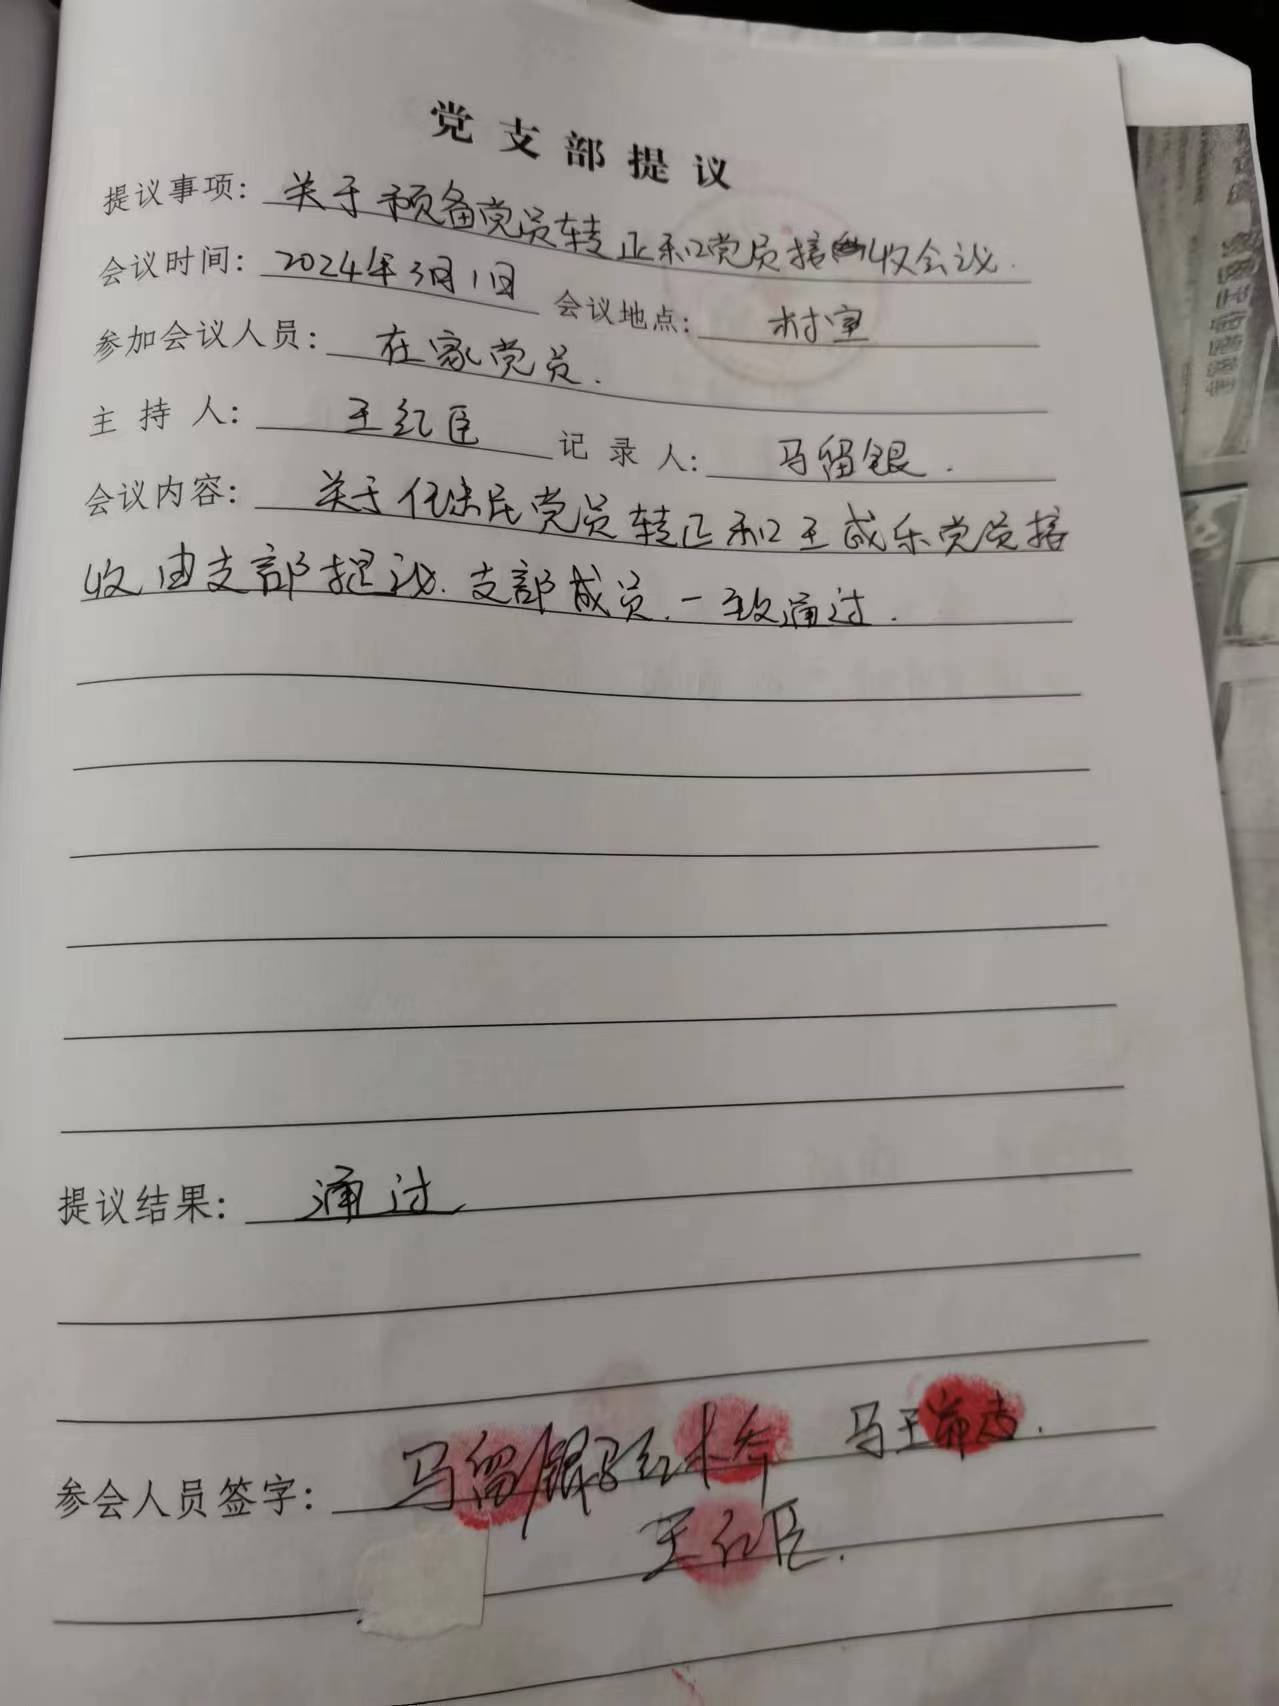 党支部提议
提议事项：关于预备党员转正和党员接收会议.
会议时间：2024年3月1日 会议地点：村室
参加会议人员：在家党员.
主持人：王红臣 记录人：马留银.
会议内容：关于任法民党员转正和王成乐党员接
收由支部提议.支部成员.一致通过.
提议结果：通过
参会人员签字：马留银 马红 马王
王红臣.